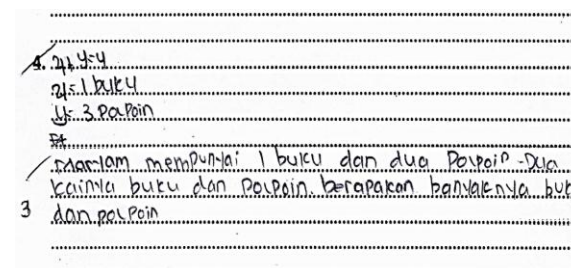 4. x + y = 4
x = 1 buku
y = 3 Polpoin
Maryam mempunyai 1 buku dan dua Polpoin. Dua
kainya buku dan Polpoin. berapakan banyaknya buk
3 dan polpoin